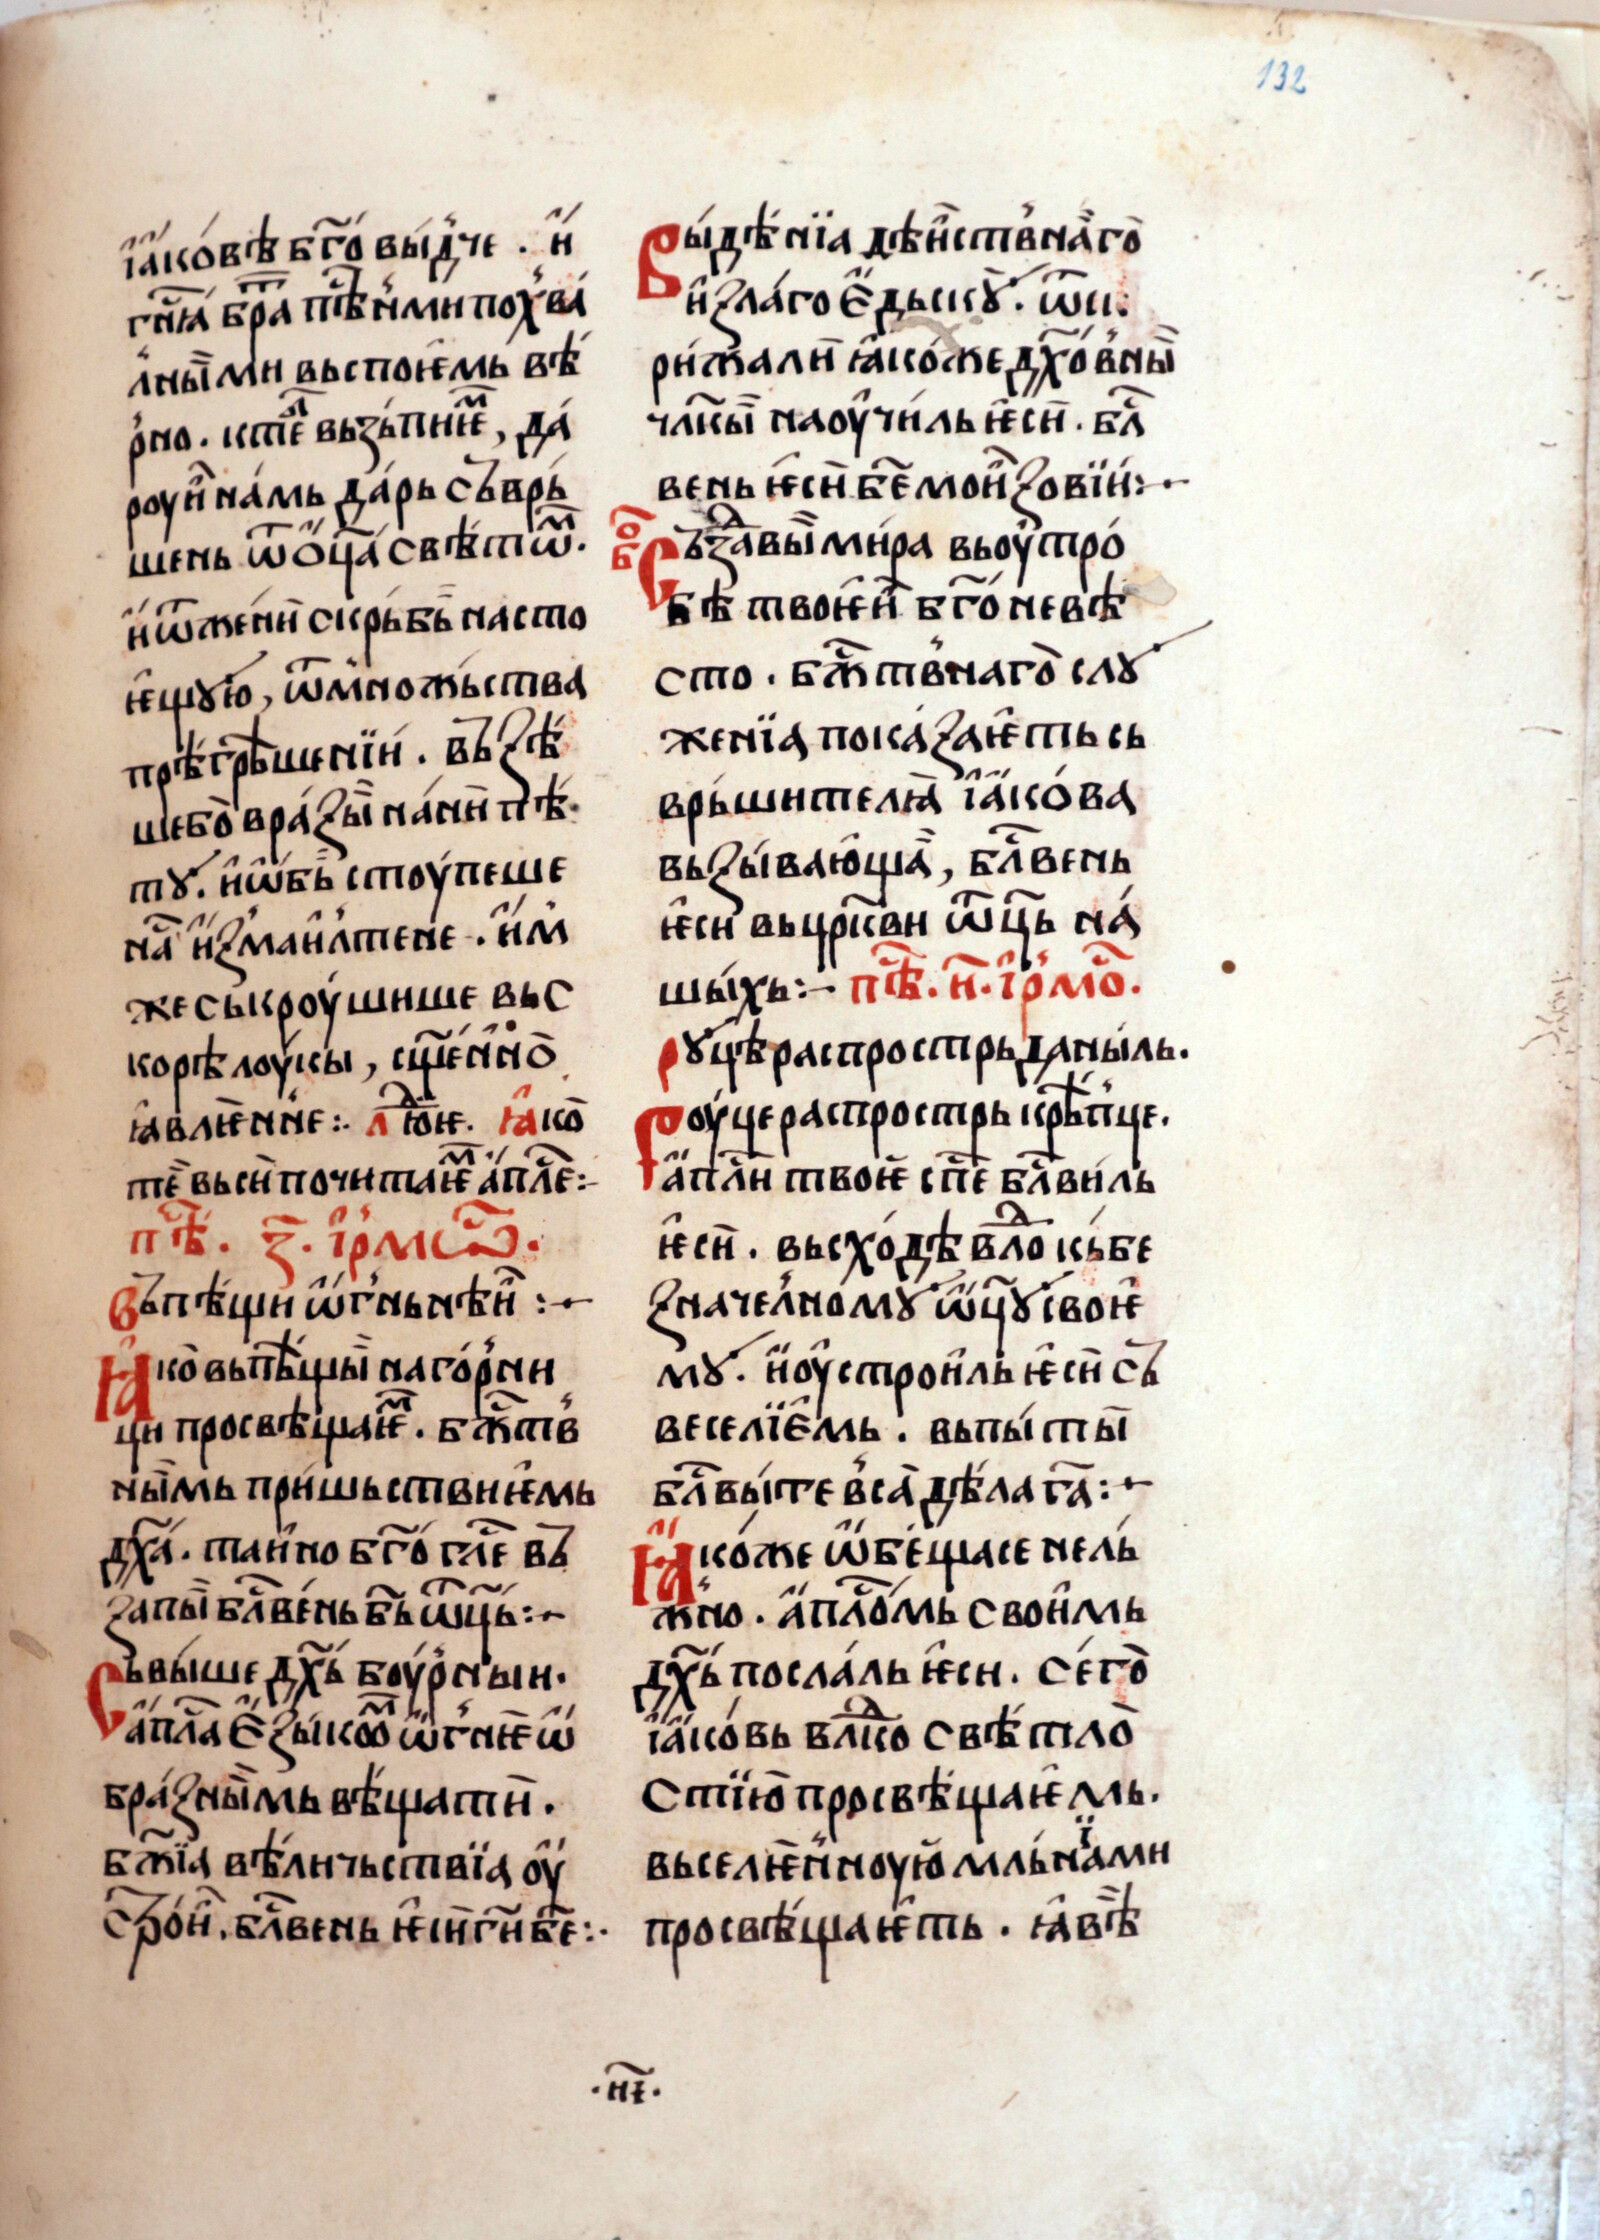 132
і҆а҆ко́вѣ бг҃о́ вы́д̾че . и҆҃
гн҃ꙗ бра҃ пѣ҃н̾ми пох̾ва́
л̾ны҃ми въспоѥ҆мь вѣ́
р̾но . кте҃ въз̾пиѥ҃ , да́
роуи҃ на́мь да́рь съврь́
шень ѿо҆ц҃а свѣ́тѡ҃ .
и҆ѿжени скрь́бъ настоѥ
ѥ҆щꙋю , ѿмножь́ства
прѣ́грѣшенїи . въꙁѣ
шебо̀ вра́ꙁы҃ на́ни пѣ́
тꙋ . и҆ѡ҆бъ̀ стоу́пеше
на҃ и҆ꙁмаи҆л̾тене . и҆м̾
жесъкроу́шише въс
корѣ лоу́кы , сщ҃е́н̾но̀
ꙗ҆влѥн̾не :· лю҃ѥ . ꙗ҆ко̀
те҃ въси почитаѥ҃ а҆пл҃е :–
пѣ҃ . ꙁ҃ . і҆р̾мѡ҃ .
Въпѣ́щи ѡ҆г̾ньнѣи҃ :–
Ꙗ҆ко̀ въпѣ́щы҃ наго́р̾ни
ци просвѣщаѥ҃ . бж҃тв̾
ны҃мь при́шьствиѥ҆мь
дх҃а́ . таи҆но бг҃о́ гл҃е въ
ꙁапы҃ бл҃ве́нь бъ҃ ѿц҃ь :–
Съвы́ше дх҃ь боу́р̾ныи .
а҆пл҃а є҆ꙁы́комь ѡ҆г̾нѥѡ҆
бра́ꙁны҃мь вѣ́щати҃ .
бж҃їа вѣ́личьствїа оу҆
строи҃ . бл҃вень ѥ҆си҃ гн҃ бе҃ :·
Вы́дѣнїа дѣи҃ств̾на҃го̀
и҆ꙁла́го є҆дьскꙋ . ѿи:
ри́жали ꙗ҆ко́же дх҃о́в̾ны҃
члк҃ы҃ наоу҆чи́ль ѥ҆си҃ . бл҃
вень ѥ҆си҃ бе҃ мои ꙁовїи :–
бо҃
Съꙁ҃авы҃ ми́ра въоу҆тро́
бѣ твоѥ҆и бг҃о́невѣ
сто . бж҃тв̾наго̀ слꙋ
женїа пока́ꙁаѥ҆ть съ
врь́шителꙗ҃ і҆а҆ко́ва
въꙁы́ваю҆ща҃ , бл҃вень
ѥ҆си въцрк҃ви ѿц҃ь на́
шы́хь :– пѣ҃ . и҃ . і҆р̾мо҃ .
Рꙋцѣ распрострь даны́ль .
Роу́це распрострь крѣ҃п̾це .
а҆пл҃и твоѥ спе҃ бл҃ви́ль
ѥ҆си҃ . въсхо́дѣ вл҃о къ́бе
ꙁначел̾номꙋ ѿц҃ꙋ своѥ҆
мꙋ . и҆оу҆строи҆ль ѥ҆си съ
веселїе҆мь . въпы́ты҃
бл҃вы́те в̾са̀ дѣ́ла га҃ :–
Ꙗ҆ко́же ѡ҆бе́щасе нель́
ж̾но . а҆пл҃о́мь свои҆мь
дх҃ь́ посла́ль ѥ҆си . се́го̀
і҆а҆ко́вь влк҃о свѣ́тло̀
стїю҃ просвѣ́щаѥ҆мь .
въселѥн̾ноую мль́нїами
просвѣ́щаѥ҆ть . ꙗ҆вѣ҃
· н҃і ·